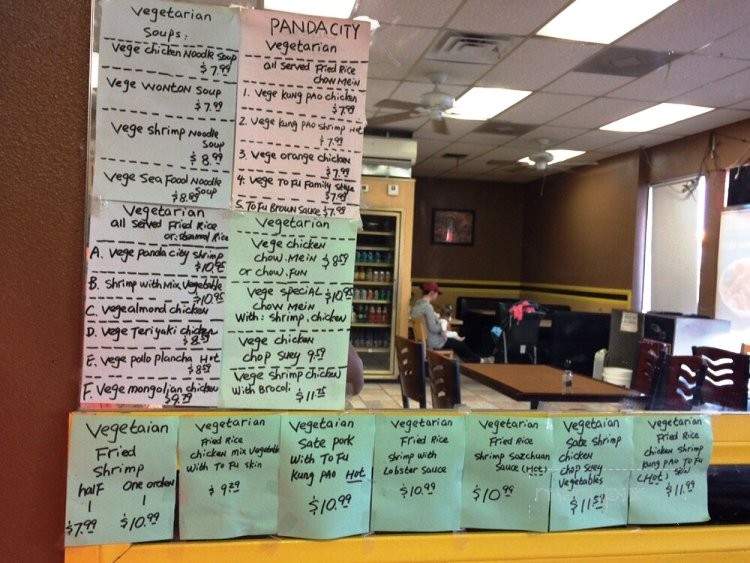 Vegetarian
Soups:
Vege chicken Noodle Soup
$7.99
Vege Wonton Soup
$7.99
Vege shrimp Noodle
Soup
$8.99
Vege Sea Food Noodle
Soup
$8.99
PANDACITY
Vegetarian
all served Fried Rice
chow Mein
1. Vege Kung PAO chicken
$7.99
2. Vege Kung PAO shrimp Hot
$7.99
3. Vege orange chicken
$7.99
4. Vege To Fu Family Style
$7.99
5. To Fu Brown Sauce $7.99
Vegetarian
all served Fried Rice
or: steamed Rice
A. Vege Panda city shrimp
$10.95
B. Shrimp with Mix Vegetable
$10.95
C. Vege almond chicken
D. Vege Teriyaki chicken
$8.59
E. Vege pollo plancha Hot
$8.59
F. Vege mongolian chicken
$9.29
Vegetarian
Vege chicken
chow. Mein $8.59
or chow. Fun
Vege special $10.95
chow Mein
With: shrimp. chicken
Vege chicken
chop suey 9.59
Vege shrimp chicken
With Brocoli $11.25
Vegetaian
Fried
Shrimp
half one order
1 1
$7.99 $10.99
Vegetarian
Fried Rice
chicken mix Vegetable
With To Fu skin
$9.29
Vegetaian
Sate pork
with To Fu
Kung PAO Hot
$10.99
Vegetarian
Fried Rice
Shrimp with
Lobster Sauce
$10.99
Vegetarian
Fried Rice
Shrimp Sazchuan
Sauce (Hot)
$10.99
Vegetaian
Sate Shrimp
chicken
chop suey
Vegetables
$11.59
Vegetaian
Fried Rice
chicken shrimp
Kung PAO To Fu
(Hot) Skin
$11.99